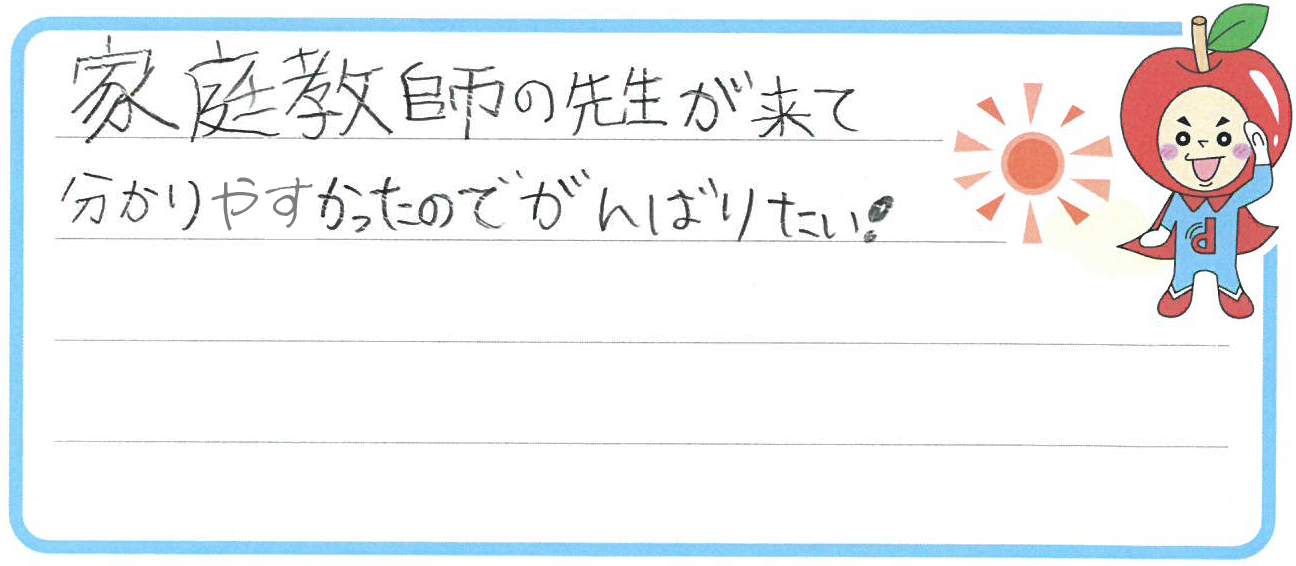 家庭教師の先生が来て
分かりやすかったのでがんばりたい!
d